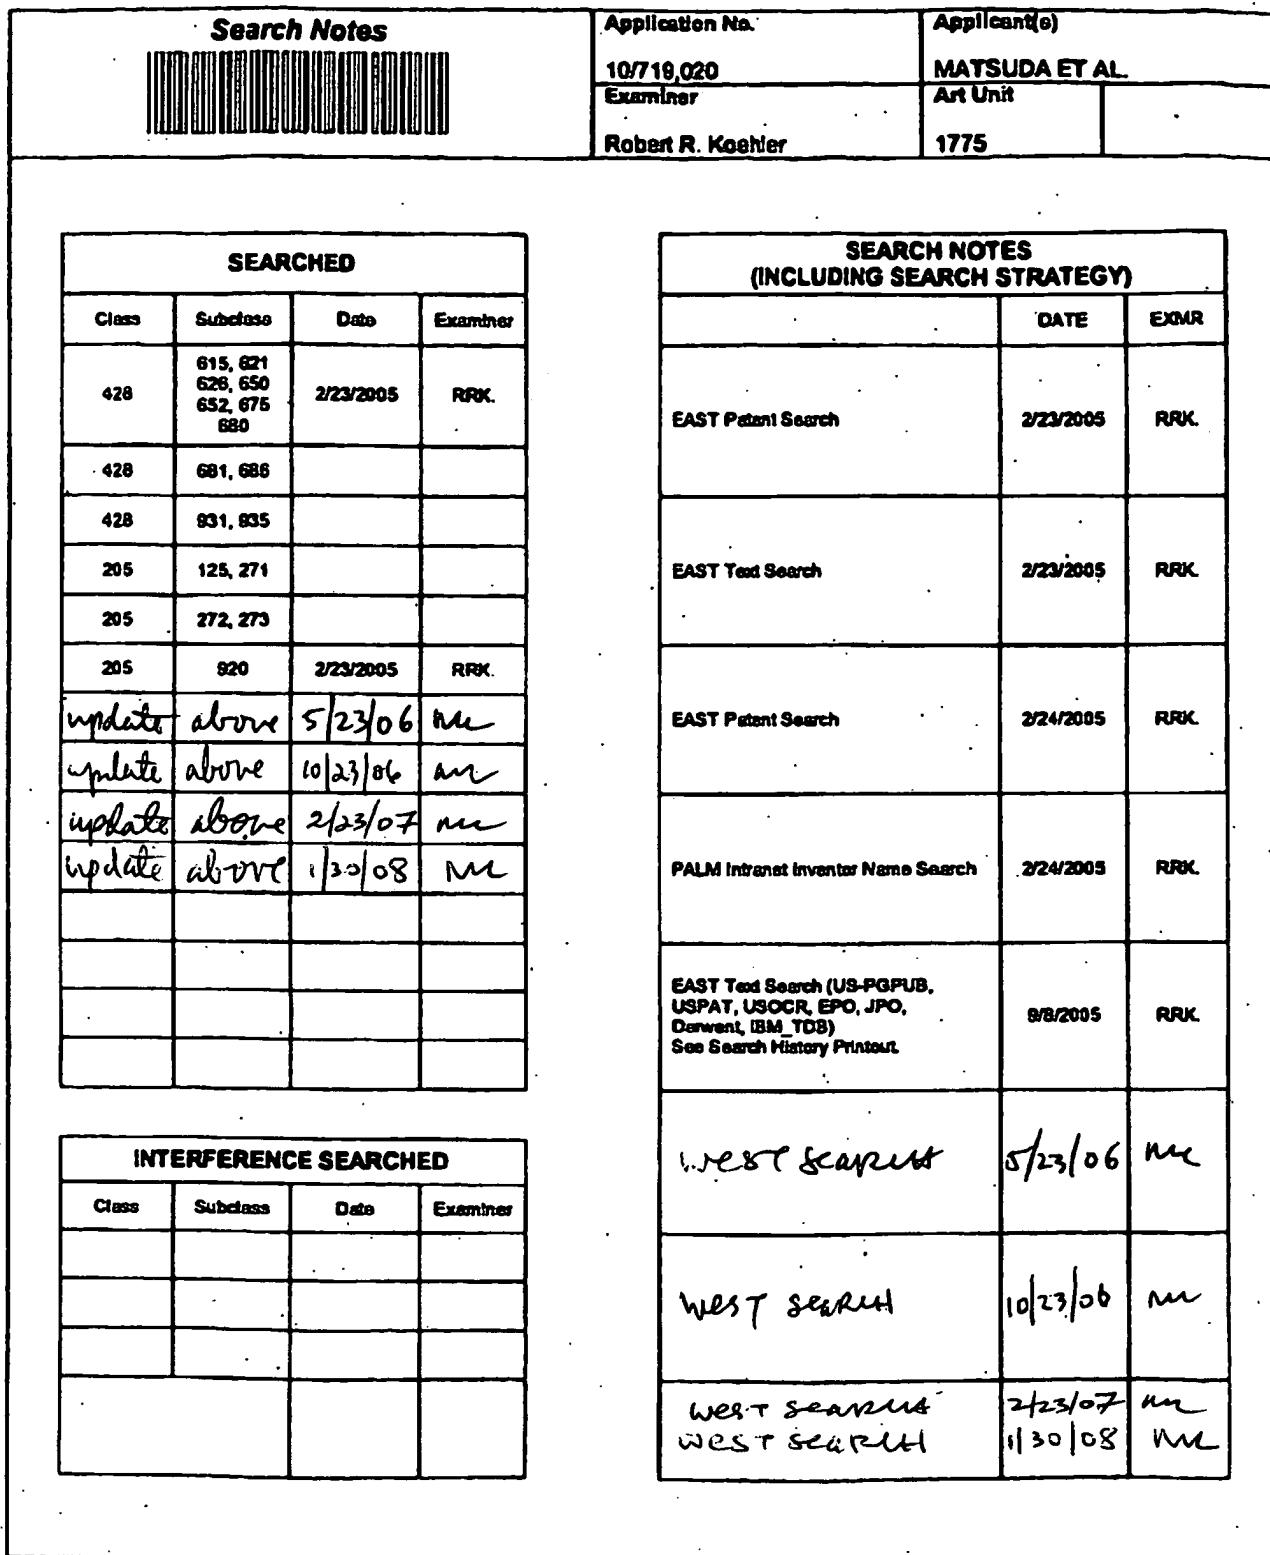 Search Notes
Application No.
Applicant(s)
10/719,020
MATSUDA ET AL.
Examiner
Art Unit
Robert R. Koehler
1775
SEARCHED
Class Subclass Date Examiner
428 615, 621 2/23/2005 RRK.
626, 650
652, 675
680
428 681, 686
428 931, 935
205 125, 271
205 272, 273
205 920 2/23/2005 RRK.
update above 5/23/06
update above 10/23/06
update above 2/23/07
update above 1/30/08
INTERFERENCE SEARCHED
Class Subclass Date Examiner
SEARCH NOTES
(INCLUDING SEARCH STRATEGY)
DATE EXMR
EAST Patent Search 2/23/2005 RRK.
EAST Text Search 2/23/2005 RRK.
EAST Patent Search 2/24/2005 RRK.
PALM Intranet Inventor Name Search 2/24/2005 RRK.
EAST Text Search (US-PGPUB,
USPAT, USOCR, EPO, JPO,
Derwent, IBM_TDB) 9/8/2005 RRK.
See Search History Printout.
WEST SEARCH 5/23/06
WEST SEARCH 10/23/06
WEST SEARCH 2/23/07
WEST SEARCH 1/30/08